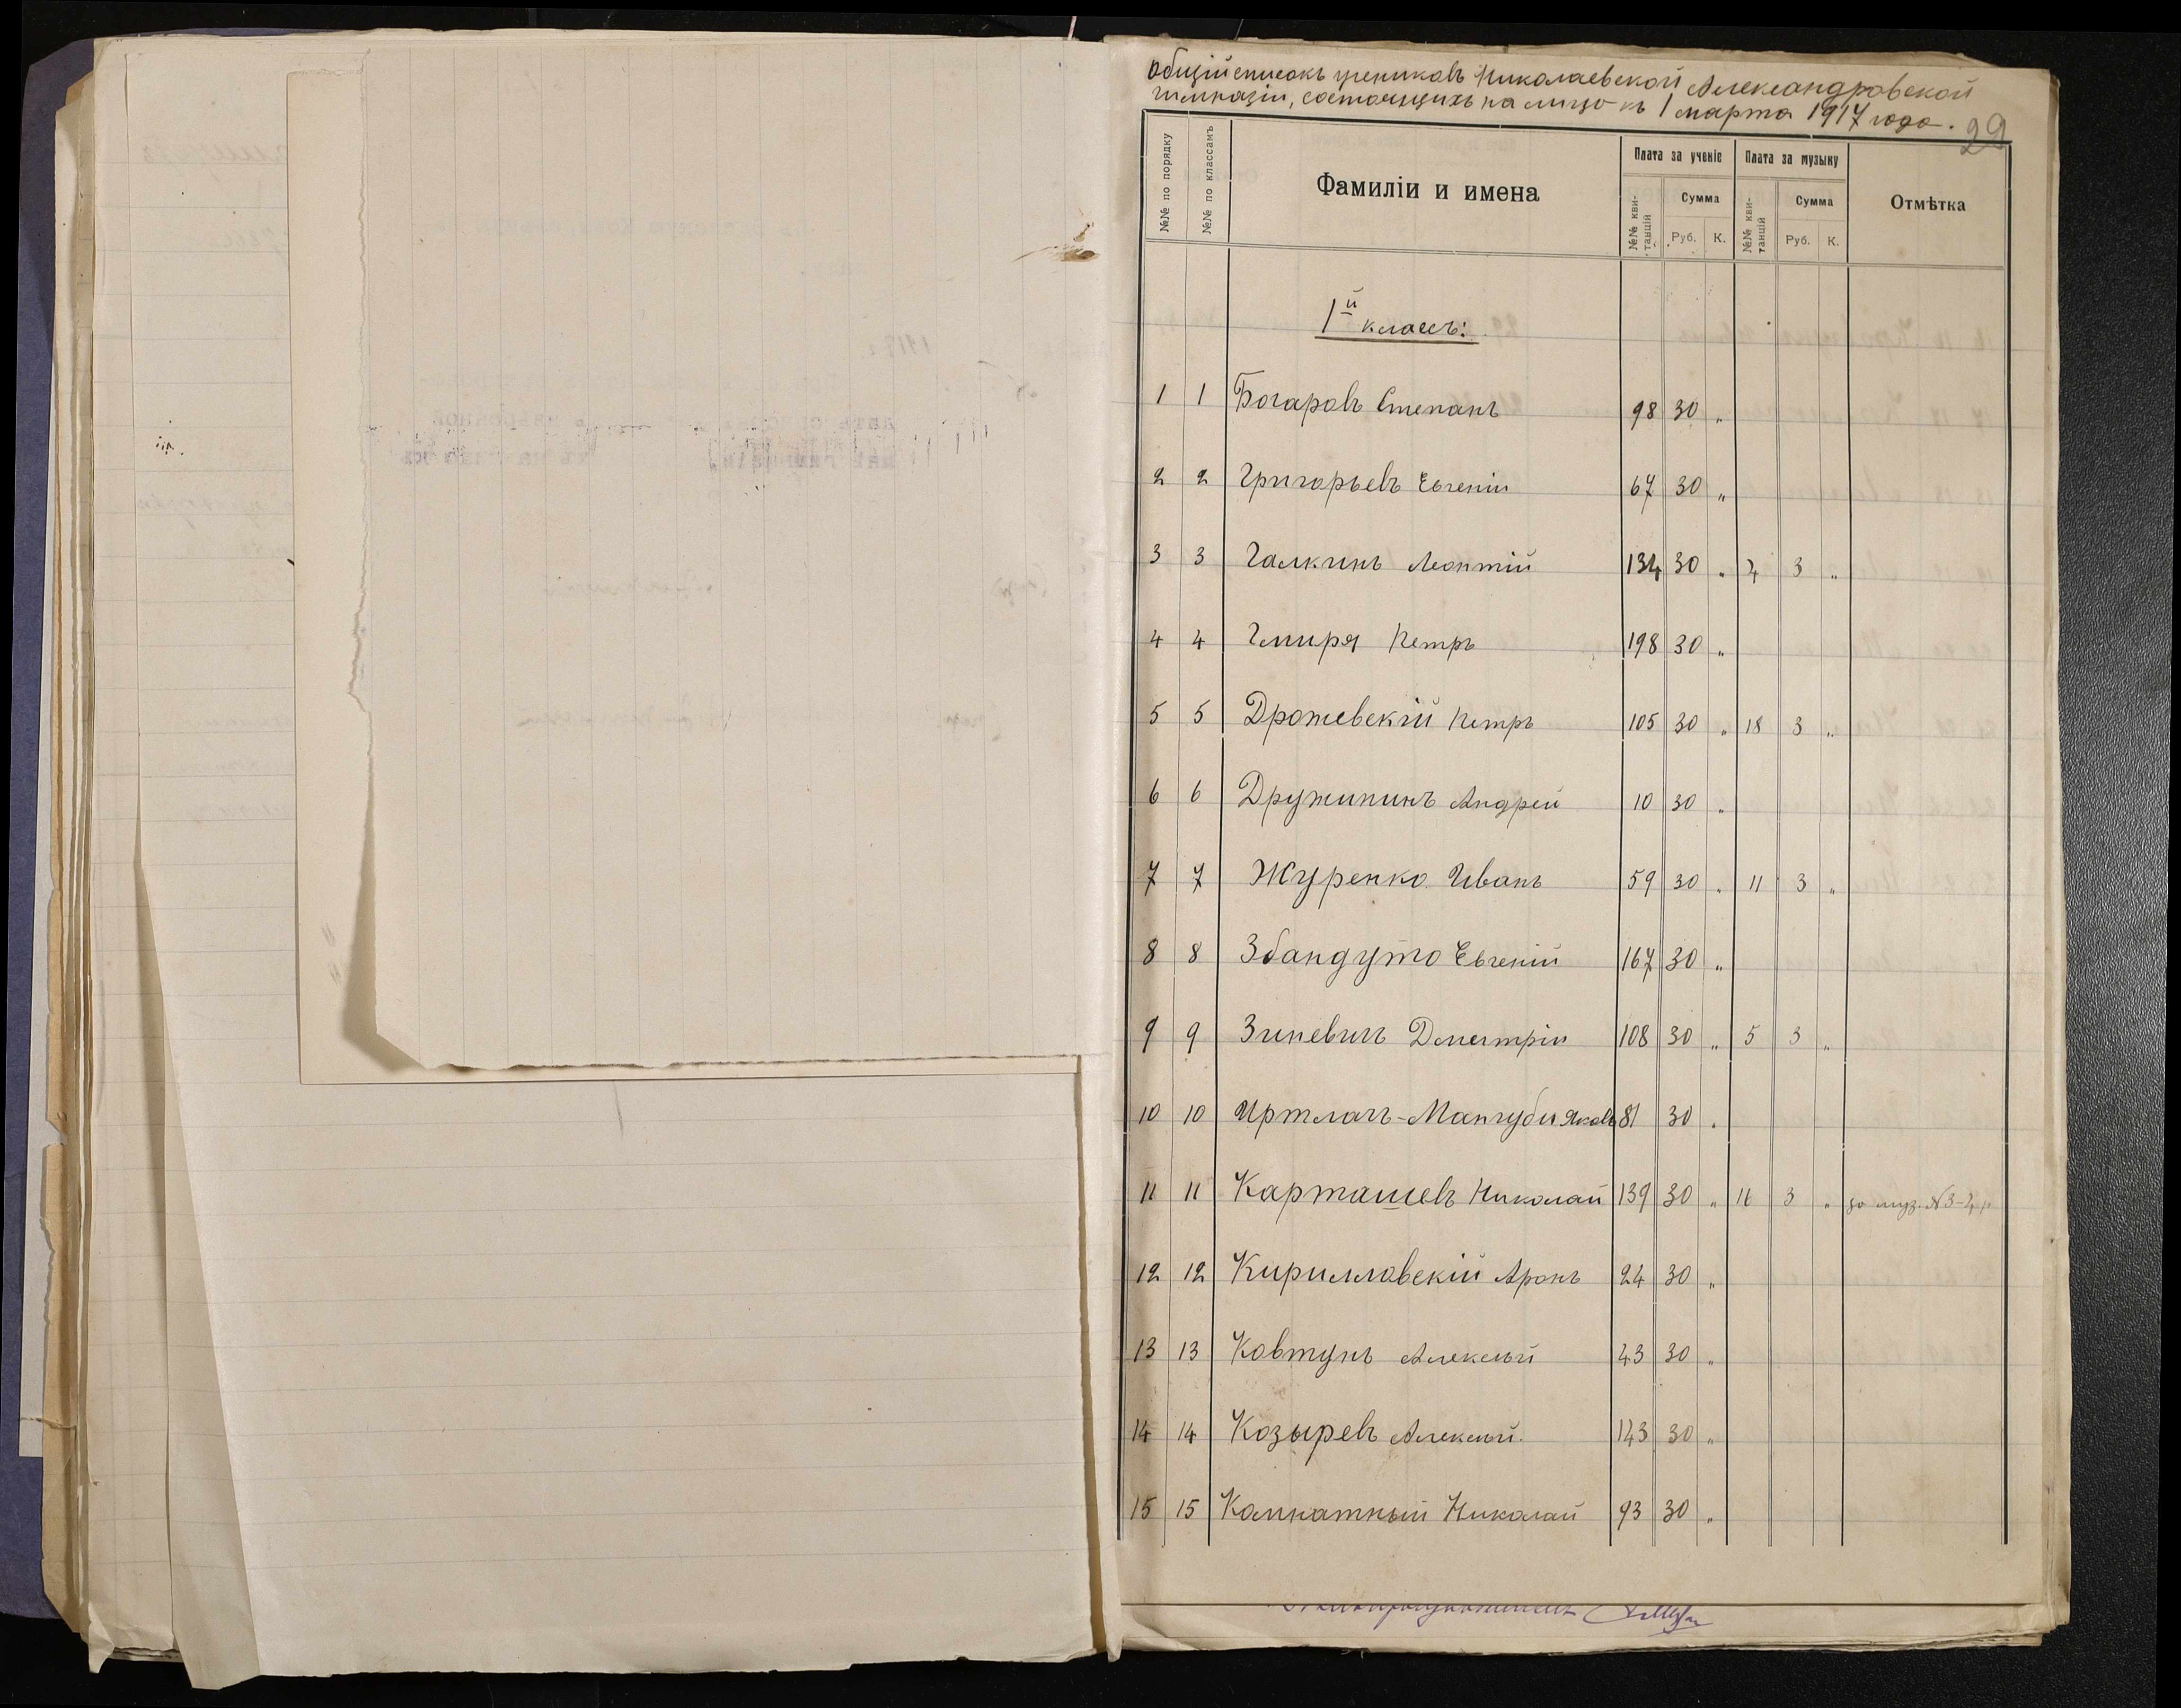 Общій списокъ учениковъ Николаевской Александровской
гимназіи, состоящихъ на лицо къ 1 марта 1917 года.
29
№№ по порядку №№ по классамъ Фамиліи и имена Плата за ученіе Плата за музыку Отмѣтка
№№ квитанцій Сумма №№ квитанцій Сумма
Руб. К. Руб. К.
1й классъ:
1 1 Богаровъ Степанъ 98 30 „
2 2 Григорьевъ Евгеній 67 30 „
3 3 Галкинъ Леонтій 134 30 „ 4 3 „
4 4 Гмиря Петръ 198 30 „
5 5 Дрожевскій Петръ 105 30 „ 18 3 „
6 6 Дружининъ Андрей 10 30 „
7 7 Журенко Иванъ 59 30 „ 11 3 „
8 8 Збандуто Евгеній 167 30 „
9 9 Зиневичъ Дмитрій 108 30 „ 5 3 „
10 10 Иртлачъ-Мангуби Яковъ 81 30 „
11 11 Карташевъ Николай 139 30 „ 16 3 „ за муз. № 3-4 р
12 12 Кирилловскій Аронъ 24 30 „
13 13 Ковтунъ Алексѣй 43 30 „
14 14 Козыревъ Алексѣй 143 30 „
15 15 Комнатный Николай 93 30 „